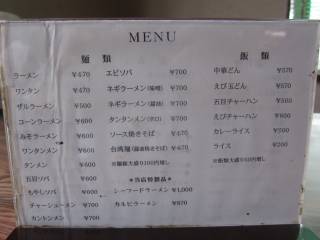 MENU
麺類
ラーメン ¥470
ワンタン ¥470
ザルラーメン ¥500
コーンラーメン ¥600
みそラーメン ¥600
ワンタンメン ¥600
タンメン ¥600
五目ソバ ¥600
もやしソバ ¥600
チャーシューメン ¥700
カントンメン ¥700
エビソバ ¥700
ネギラーメン(味噌) ¥700
ネギラーメン(醤油) ¥700
タンタンメン(辛口) ¥700
ソース焼きそば ¥470
台湾麺 ¥470
※麺類大盛り100円増し
※当店特製品※
シーフードラーメン ¥1,000
カルビラーメン ¥870
飯類
中華どん ¥570
えび玉どん ¥570
五目チャーハン ¥500
えびチャーハン ¥600
カレーライス ¥500
ライス ¥200
※飯類大盛り100円増し